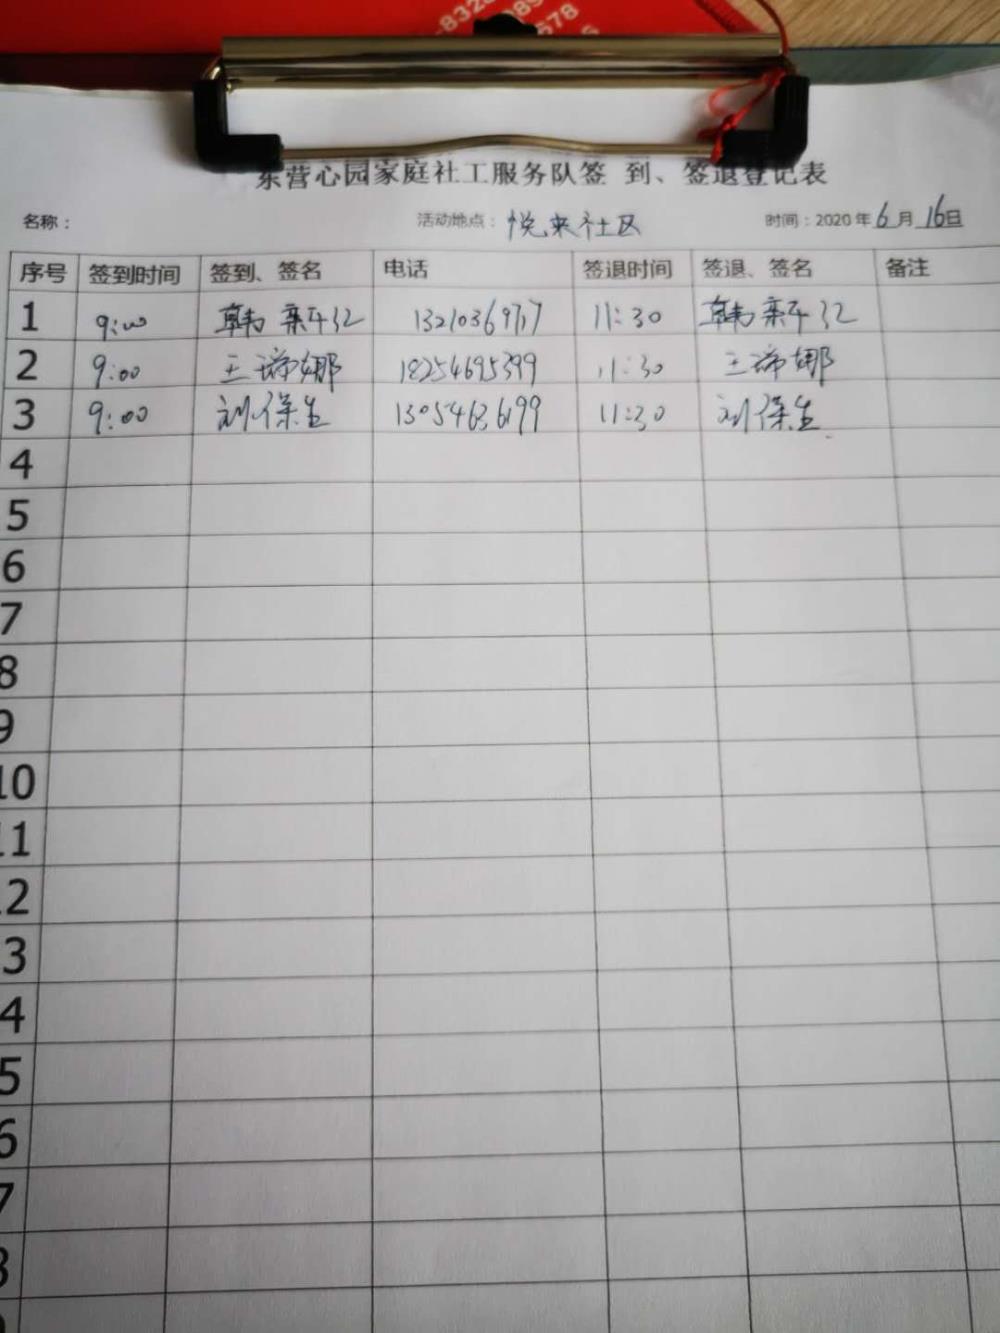 -832
089
678
东营心园家庭社工服务队签 到、签退登记表
名称： 活动地点：悦来社区 时间：2020 年 6 月 16 日
序号 签到时间 签到、签名 电话 签退时间 签退、签名 备注
1 9:00 韩 11:30 韩
2 9:00 王瑞娜 18254695399 11:30 王瑞娜
3 9:00 刘保生 13054636199 11:30 刘保生
4
5
6
7
8
9
10
11
12
3
4
5
6
7
8